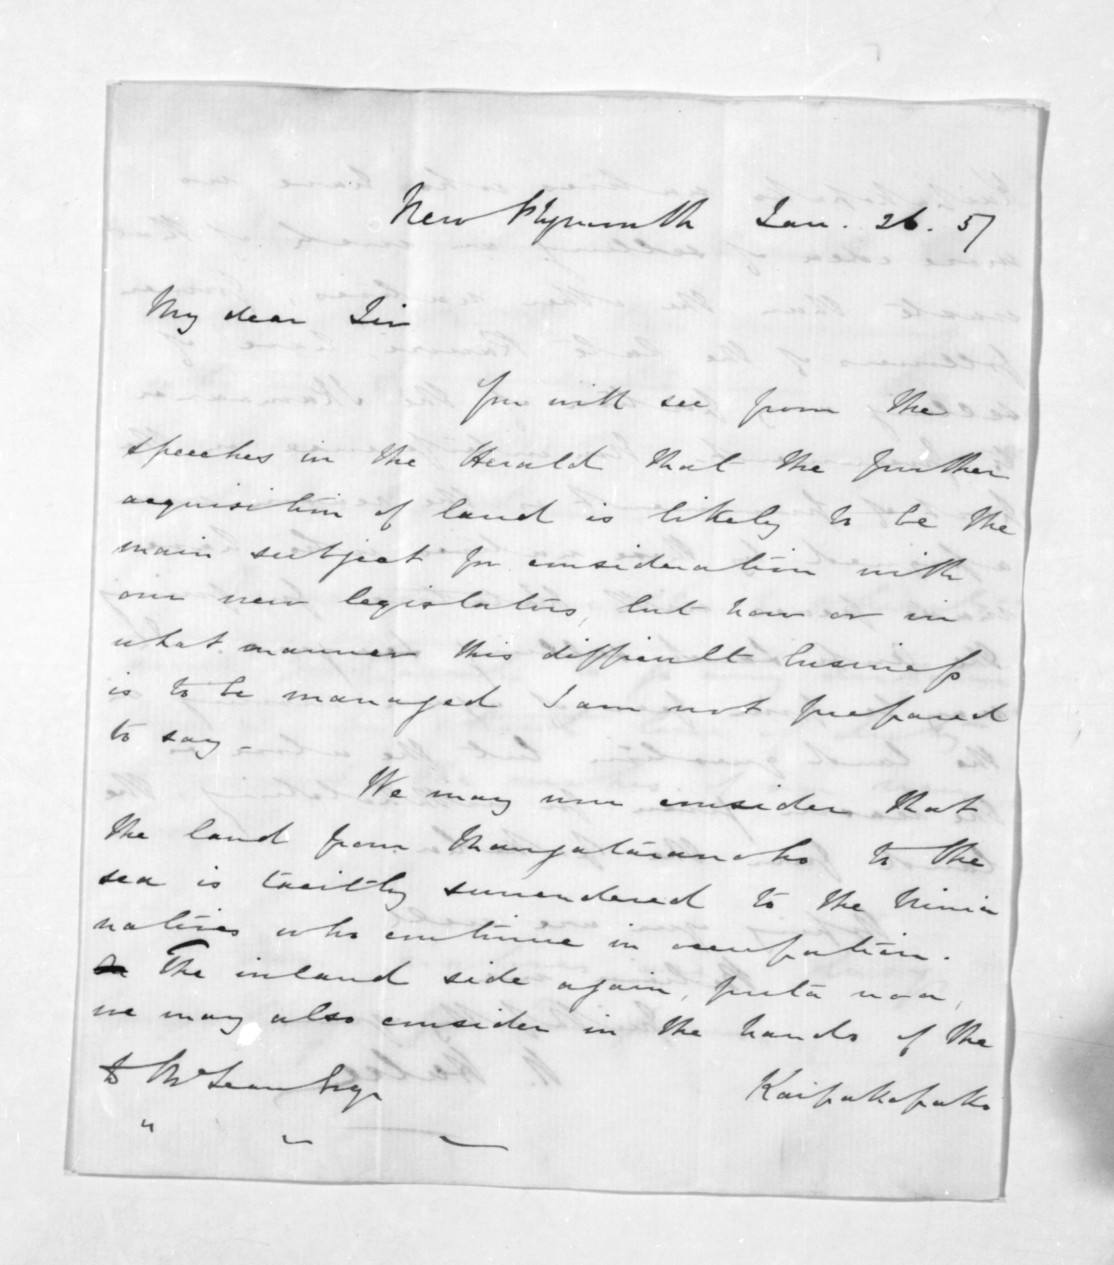 New Plymouth Jan. 26. 57
My dear Sir
You will see from the
speeches in the Herald that the further
acquisition of land is likely to be the
main subject for consideration with
our new legislators, but how or in
what manner this difficult business
is to be managed I am not prepared
to say _
We may now consider that
the land from to the
sea is tacitly surrendered to the Ninia
natives who continue in occupation.
The inland side again, puta noa,
we may also consider in the hands of the
Kaipakopako
D McLean Esqr
" " "